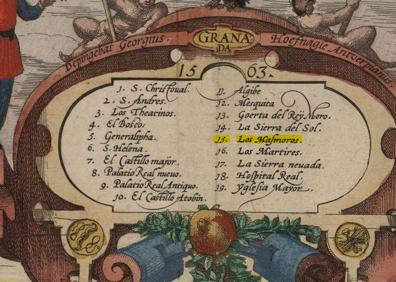 GRANA
DA
Depingebat Georgius.
Hoefnagle Antverpianus
1563.
1. S. Christoual.
2. S. Andres.
3. Los Theatinos.
4. El Bosco.
5. Generalipha.
6. S. Helena.
7. El Castillo major.
8. Palatio Real nueuo.
9. Palatio Real Antiquo.
10. El Castillo Atobin.
11. Algibe
12. Mesquita
13. Goerta del Rey Moro.
14. La Sierra del Sol.
15. Los Masmoros.
16. Los Martires.
17. La Sierra neuada.
18. Hospital Real.
19. Yglesia Mayor.